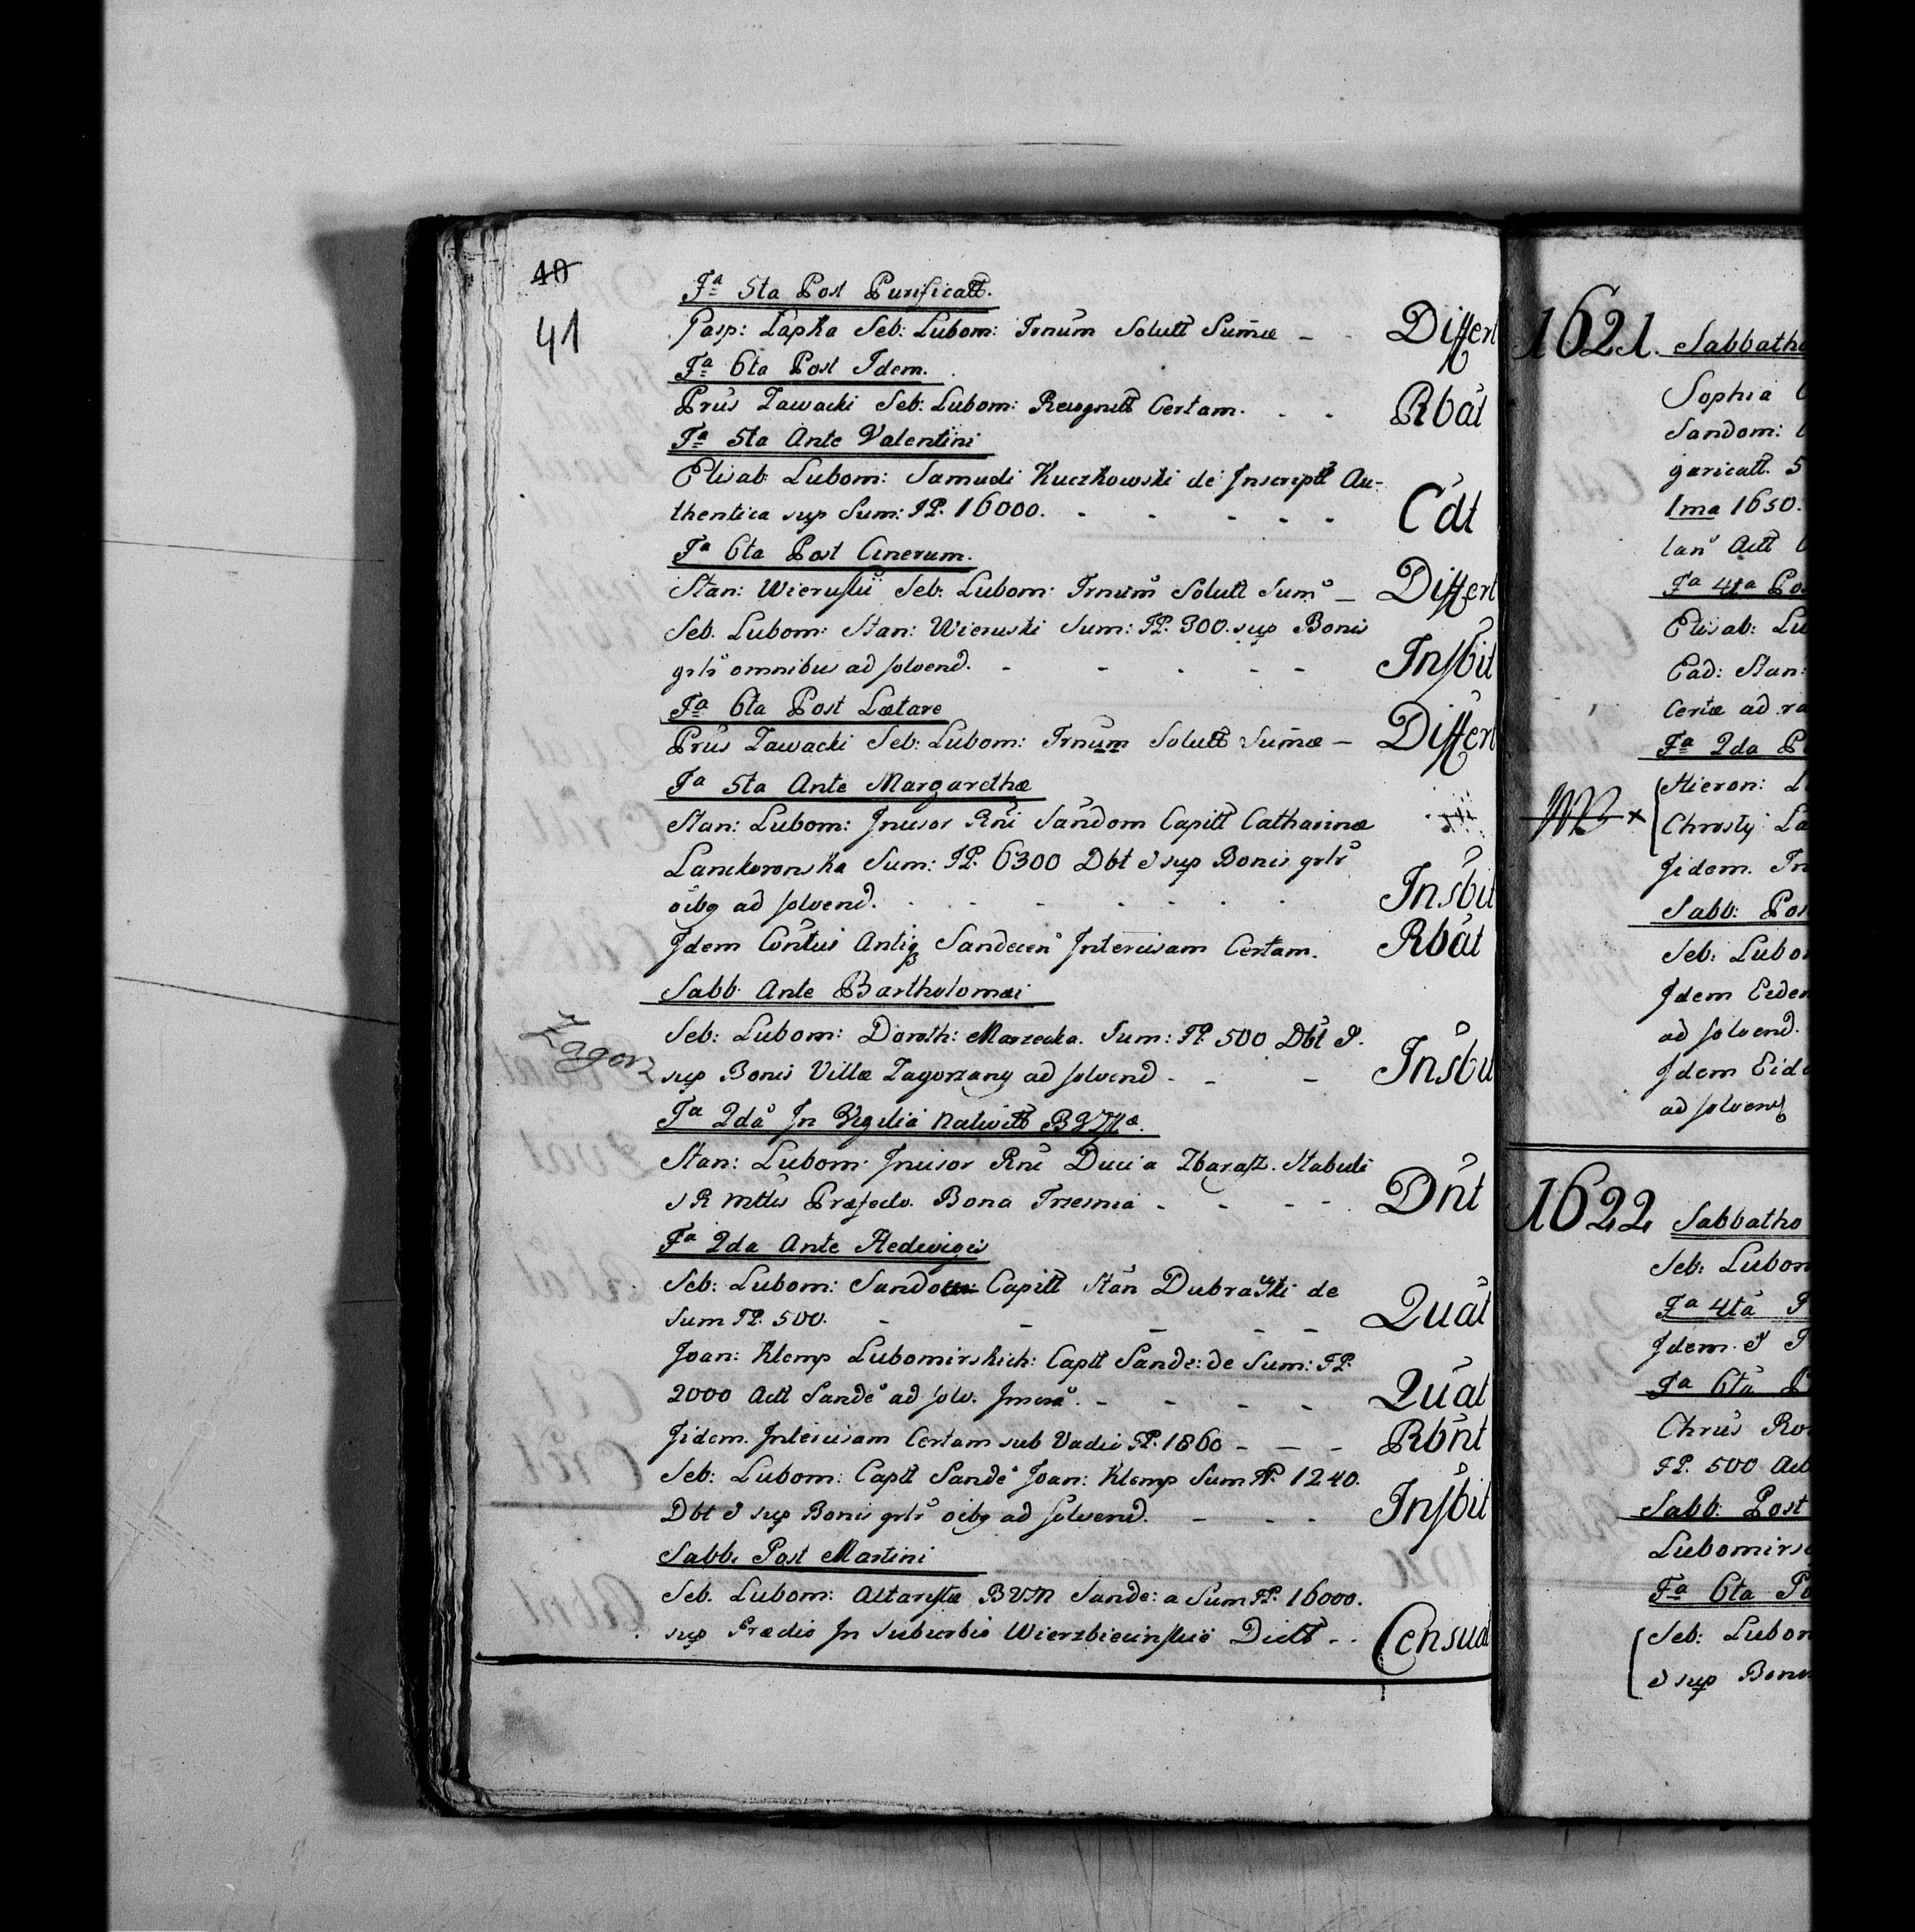 40
41
Fa 5ta Post Purificatt.
Gasp: Łapka Seb: Lubom: Trnum Solutt Sumæ - - Differt
Fa 6ta Post Idem.
Prus Zawacki Seb: Lubom: Recognitt Certam. - - Rbat
Fa 5ta Ante Valentini
Elisab: Lubom: Samueli Kuczkowski de Inscriptt Au-
thentica sup Sum: FP. 16000. - - - - - Cdt
Fa 6ta Post Cinerum.
Stan: Wieruskii Seb: Lubom: Trnum Solutt Sum - Differt
Seb. Lubom: Stan: Wieruski Sum: FP. 300. sup Bonis
grlr omnibus ad solvend. - - - - - Insbit
Fa 6ta Post Lætare
Prus Zawacki Seb: Lubom: Trnum Solutt Sumæ - Differt
Fa 5ta Ante Margarethæ
Stan: Lubom: Incisor Rni Sandom Capitt Catharinæ
Lanckoronska Sum: FP. 6300 Dbt & sup Bonis grlr
oibq ad solvend. - - - - - Insbit
Idem Contus Antiq Sandecen Intercisam Certam. Rbat
Sabb. Ante Bartholomæi
Zagorz
Seb: Lubom: Doroth: Marzecka. Sum: FP. 500 Dbt &.
sup Bonis Villæ Zagorzany ad solvend - - - Insbit
Fa 2da In Vigilia Nativitt BVMæ.
Stan: Lubom: Incisor Rni Duci a Zbaraz. Stabuli
S R Mttis Præfecto. Bona Trzesnia - - - - Dnt
Fa 2da Ante Hedwigis
Seb: Lubom: Sandom Capitt Stan Dubrawski de
Sum FP. 500. - - - - - Quat
Joan: Klemp Lubomirskich: Captt Sande: de Sum: FP.
2000 Actt Sande ad solv. - - - - Quat
Iidem. Intercisam Certam sub Vadio FP. 1860 - - - Rbnt
Seb: Lubom: Captt Sande Joan: Klemp Sum FP. 1240.
Dbt & sup Bonis grlr oibq ad solvend. - - - Insbit
Sabb. Post Martini
Seb. Lubom: Altaristæ BVM Sande: a Sum FP. 16000.
sup Prædio In Suburbio Dictt - - Censuat
1621. Sabbatho
Sophia
Sandom:
garicatt. 5
1ma 1650.
lan Actt
Fa 4ta Po
Elisab: Lu
Ead: Stan:
Certæ ad ra
Fa 2da P
Hieron: L
Chrosty: La
Iidem. In
Sabb: Pos
Seb: Lubo
Idem Eiden
ad solvend.
Idem Eide
ad solvend
1622 Sabbatho
Seb: Lubom
Fa 4ta P
Idem &
Fa 6ta P
Chrus Ro
FP. 500 Act
Sabb: Post
Lubomirs
Fa 6ta Po
Seb: Lubom
& sup Bonis